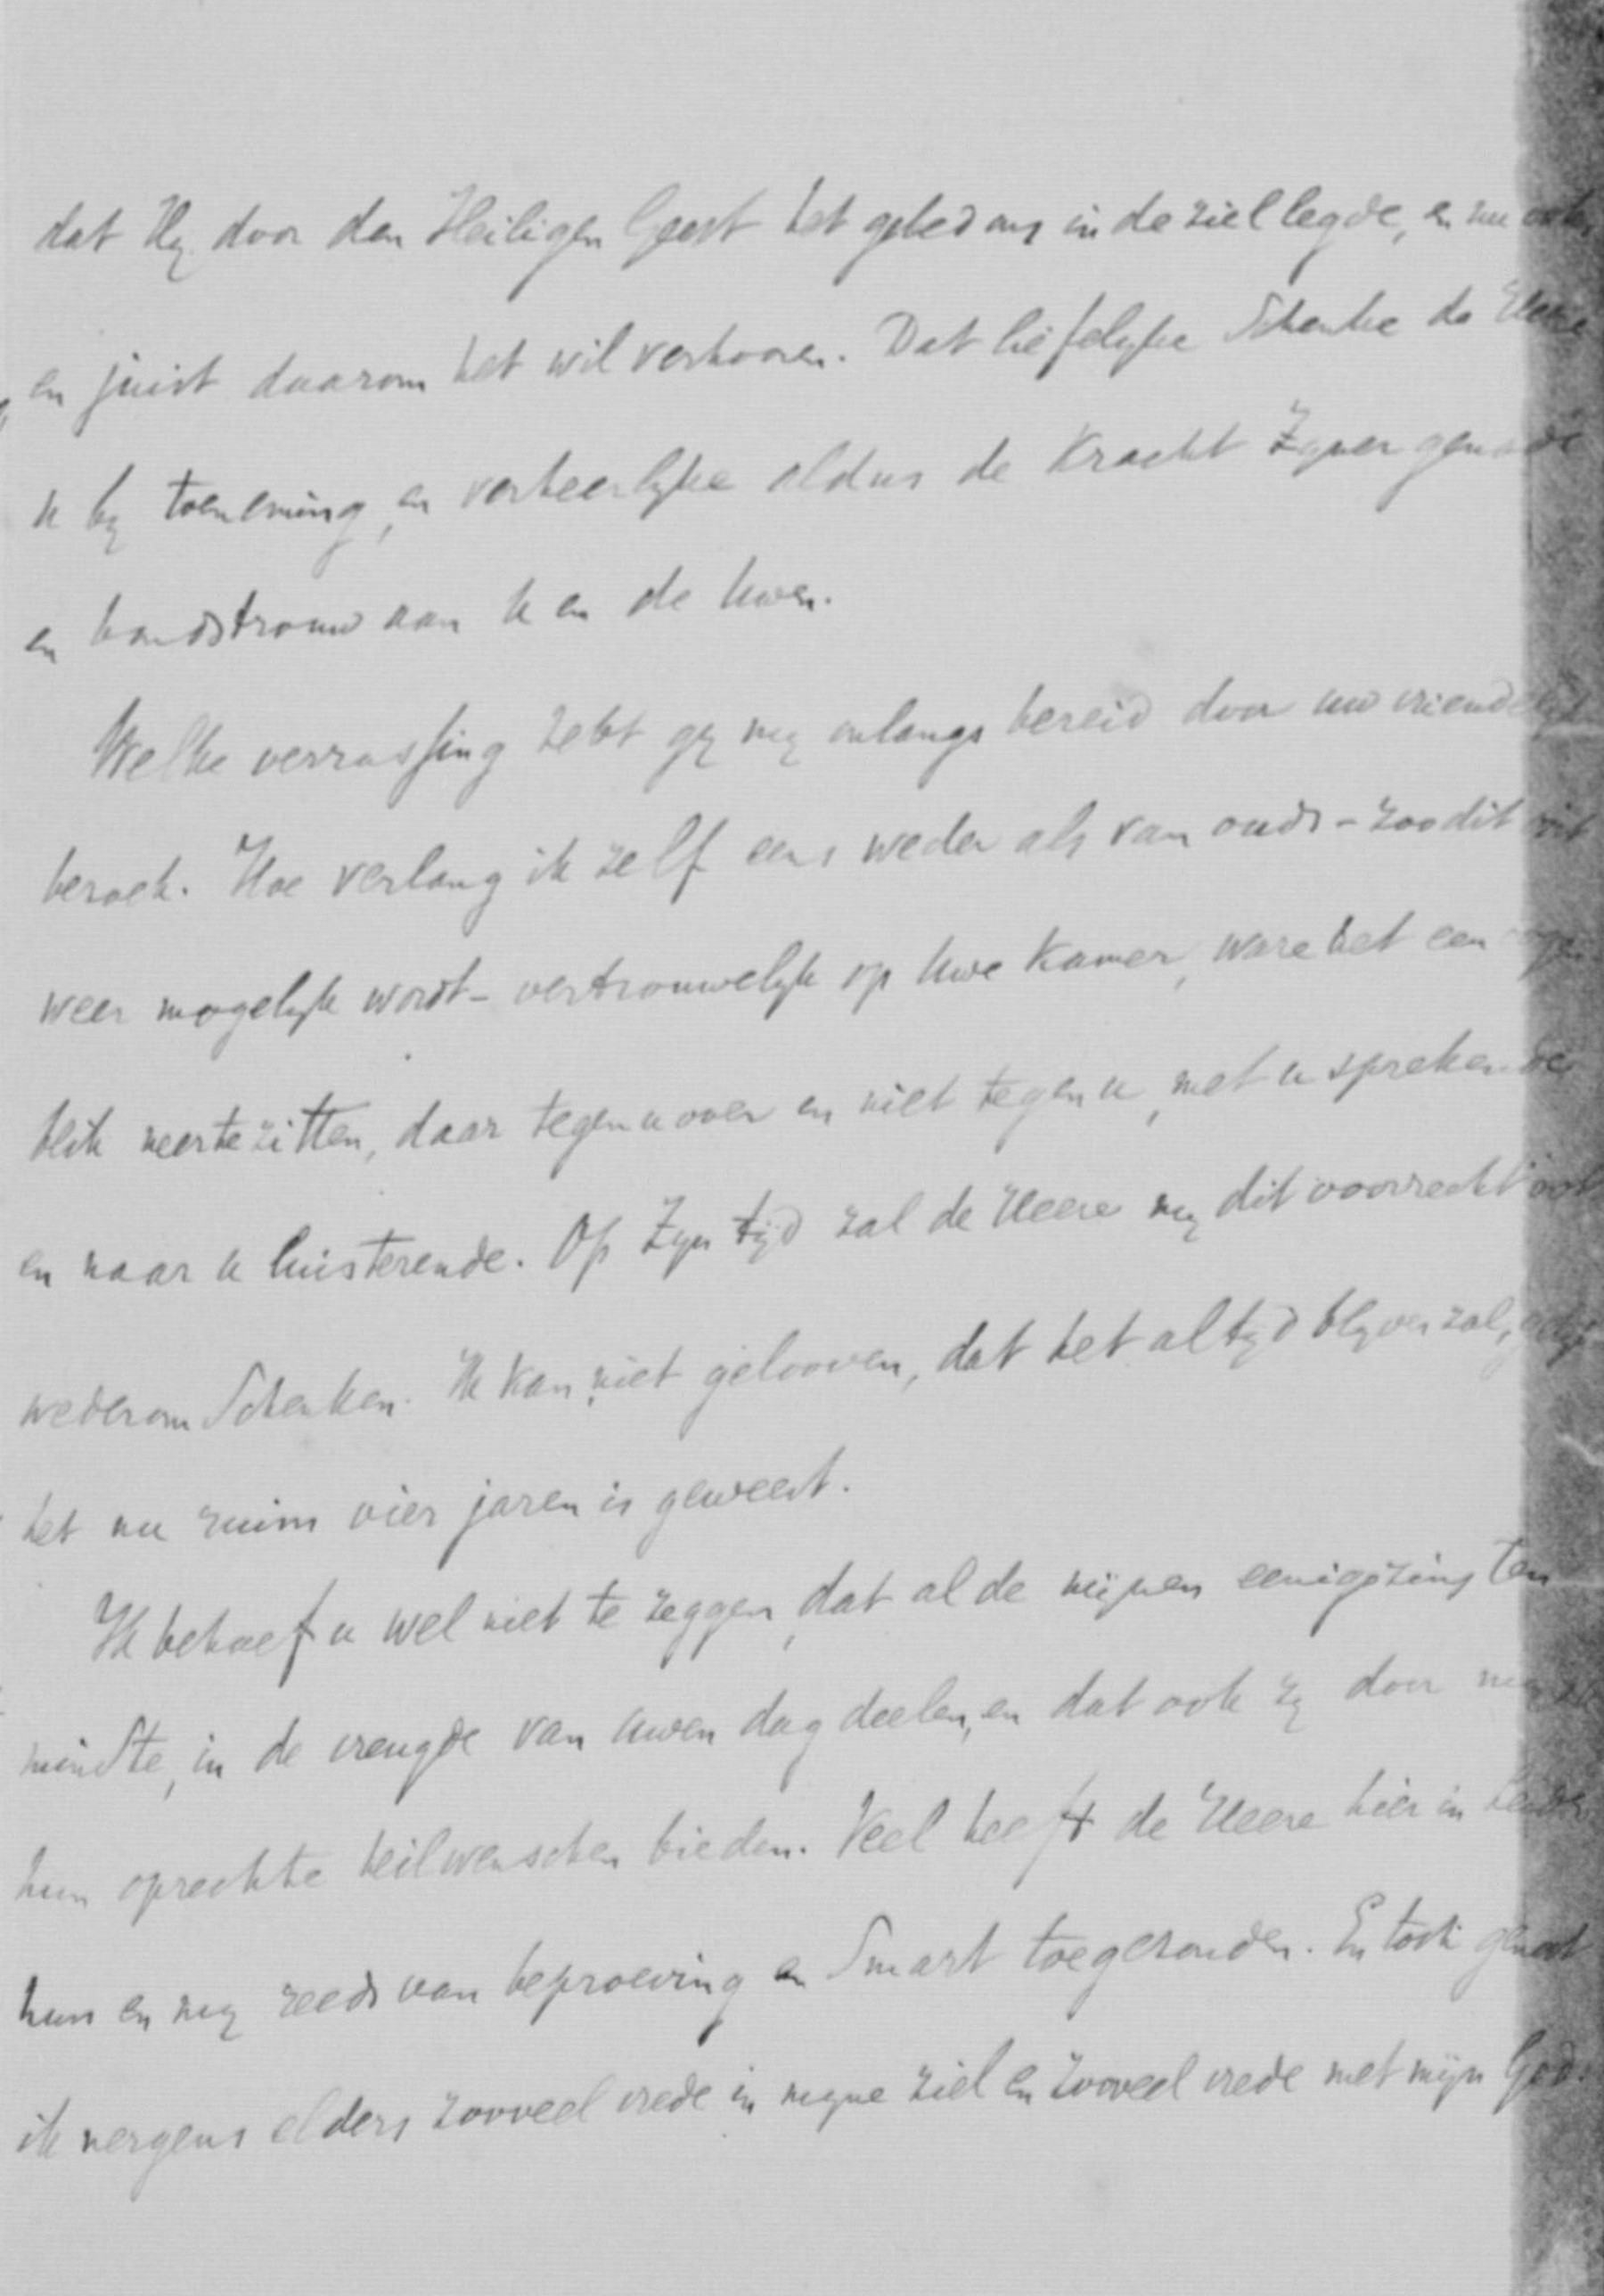 dat Hy door den Heiligen Geest het gebed ons in de ziel legde, en nu ook
en juist daarom het wil verhooren. Dat liefelyke Schenke de Heere
u by toeneming, en verheerlyke aldus de Kracht Zyner genade
en bondstrouw aan U en de Uwen.
Welke verrassing hebt gy my onlangs bereid door uw vriendelyk
bezoek. Hoe verlang ik zelf eens weder als van ouds - zoo dit ooit
weer mogelyk wordt - vertrouwelyk op Uwe Kamer, ware het een oogen
blik neer te zitten, daar tegen u over en niet tegen u, met u sprekende
en naar u luisterende. Op Zyn tijd zal de Heere my dit voorrecht ook
wederom Schenken. Ik kan niet gelooven, dat het altyd blyven zal, gelyk
het nu ruim vier jaren is geweest.
Ik behoef u wel niet te zeggen, dat al de mijnen eenigzins ten
minste, in de vreugde van Uwen dag deelen, en dat ook zy door my
hun oprechte heilwenschen bieden. Veel heeft de Heere hier in
hun en my reeds van beproeving en Smart toegezonden. En toch genoot
ik nergens elders zooveel vrede in myne ziel en zooveel vrede met mijn God.